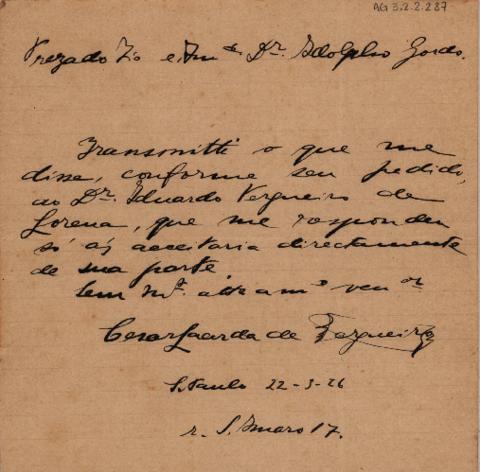 AG 3.2.2.287
Prezado Tio e Am.º Dr. Adolpho Gordo.
Transmitti o que me
disse, conforme seu pedido,
ao Dr. Eduardo Vergueiro de
Lorena, que me respondeu
só as acceitaria directamente
de sua parte.
Cesar Lacerda de Vergueiro
S. Paulo 22-3-26
r. S. Amaro 17.